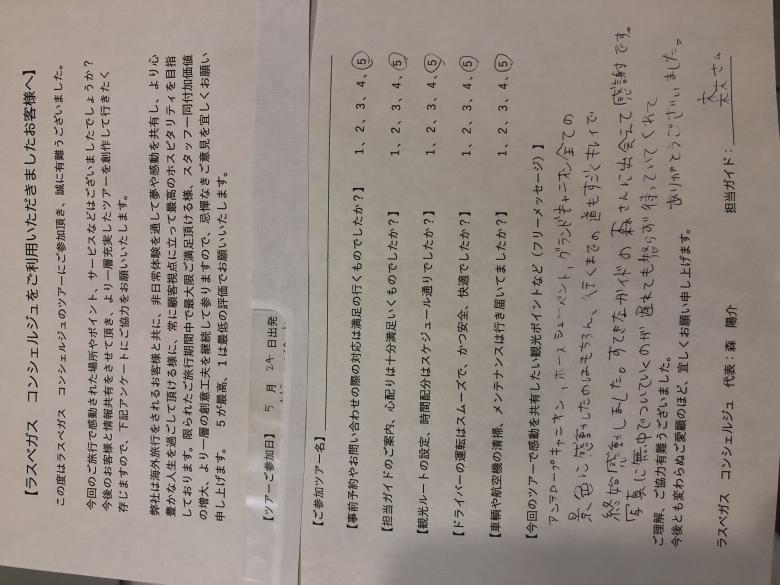 【ラスベガス　コンシェルジュをご利用いただきましたお客様へ】
この度はラスベガス　コンシェルジュのツアーにご参加頂き、誠に有難うございました。
今回のご旅行で感動された場所やポイント、サービスなどはございましたでしょうか？
今後のお客様と情報共有をさせて頂き、より一層充実したツアーを創作して行きたく
存じますので、下記アンケートにご協力をお願いいたします。
弊社は海外旅行をされるお客様と共に、非日常体験を通して夢や感動を共有し、より心
豊かな人生を過ごして頂ける様に、常に顧客視点に立って最高のホスピタリティを目指
しております。限られたご旅行期間中で最大限ご満足頂ける様、スタッフ一同付加価値
の増大、より一層の創意工夫を継続して参りますので、忌憚なきご意見を宜しくお願い
申し上げます。　５が最高、１は最低の評価でお願いいたします。
【ツアーご参加日】　5　月　24　日出発
【ご参加ツアー名】
【事前予約やお問い合わせの際の対応は満足の行くものでしたか？】　1、2、3、4、5
【担当ガイドのご案内、心配りは十分満足いくものでしたか？】　1、2、3、4、5
【観光ルートの設定、時間配分はスケジュール通りでしたか？】　1、2、3、4、5
【ドライバーの運転はスムーズで、かつ安全、快適でしたか？】　1、2、3、4、5
【車輌や航空機の清掃、メンテナンスは行き届いてましたか？】　1、2、3、4、5
【今回のツアーで感動を共有したい観光ポイントなど（フリーメッセージ）】
アンテロープキャニオン，ホースシューベント，グランドキャニオン全ての
景色に感動したのはもちろん、行くまでの道もすごくキレイで
終始感動しました。すてきなガイドの森さんに出会えて感謝です。
写真に夢中でついていくのが遅れても怒らず待っていてくれて
ありがとうございました。
ご理解、ご協力有難うございました。
今後とも変わらぬご愛顧のほど、宜しくお願い申し上げます。
ラスベガス　コンシェルジュ　代表：森　陽介　　担当ガイド：森さん